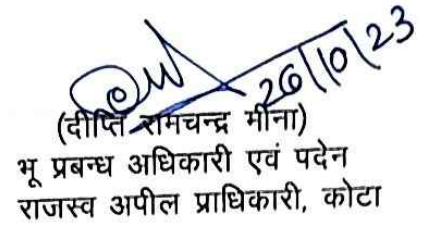 26/10/23
(दीप्ति रामचन्द्र मीना)
भू प्रबन्ध अधिकारी एवं पदेन
राजस्व अपील प्राधिकारी, कोटा